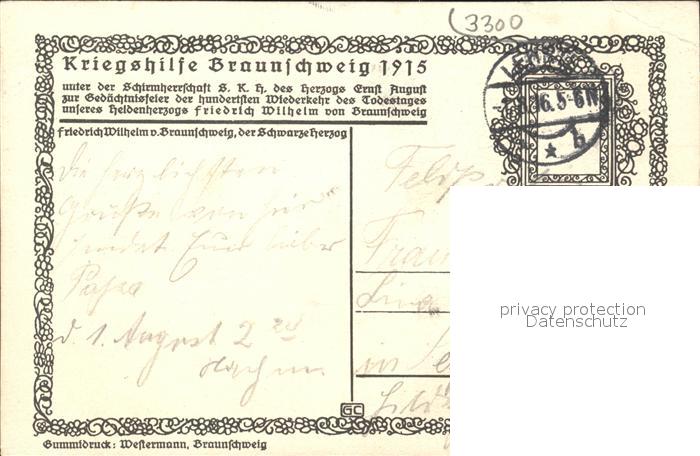 3300
Kriegshilfe Braunschweig 1915
unter der Schirmherrschaft S. K. H. des Herzogs Ernst August
zur Gedächtnisfeier der hundertsten Wiederkehr des Todestages
unseres Heldenherzogs Friedrich Wilhelm von Braunschweig
Friedrich Wilhelm v. Braunschweig, der Schwarze Herzog
5-6N
* b
Die herzlichsten
Grüße von hier
sendet Euer lieber
Papa
d. 1. August
Frau
in
GC
Gummidruck: Westermann, Braunschweig
privacy protection
Datenschutz